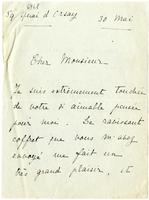 59 Quai d'Orsay
30 Mai
Cher Monsieur
Je suis extrêmement touchée
de votre si aimable pensée
pour moi. Le ravissant
coffret que vous m'avez
envoyé me fait un
très grand plaisir, et